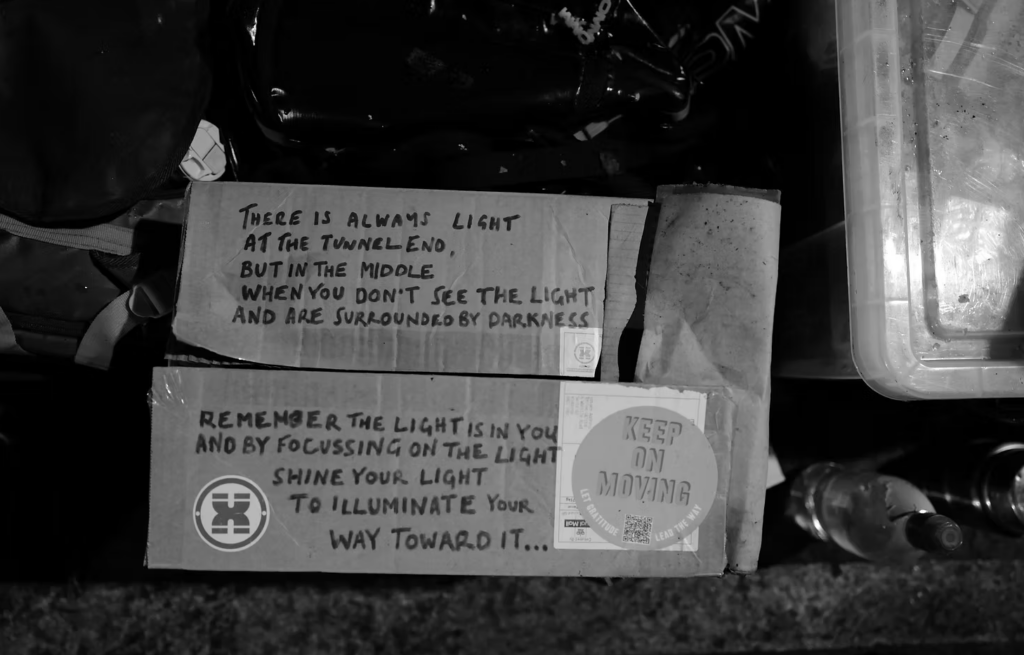 THERE IS ALWAYS LIGHT
AT THE TUNNEL END,
BUT IN THE MIDDLE
WHEN YOU DON'T SEE THE LIGHT
AND ARE SURROUNDED BY DARKNESS
REMEMBER THE LIGHT IS IN YOU
AND BY FOCUSSING ON THE LIGHT
SHINE YOUR LIGHT
TO ILLUMINATE YOUR
WAY TOWARD IT...
KEEP
ON
MOVING
LET GRATITUDE LEAD THE WAY